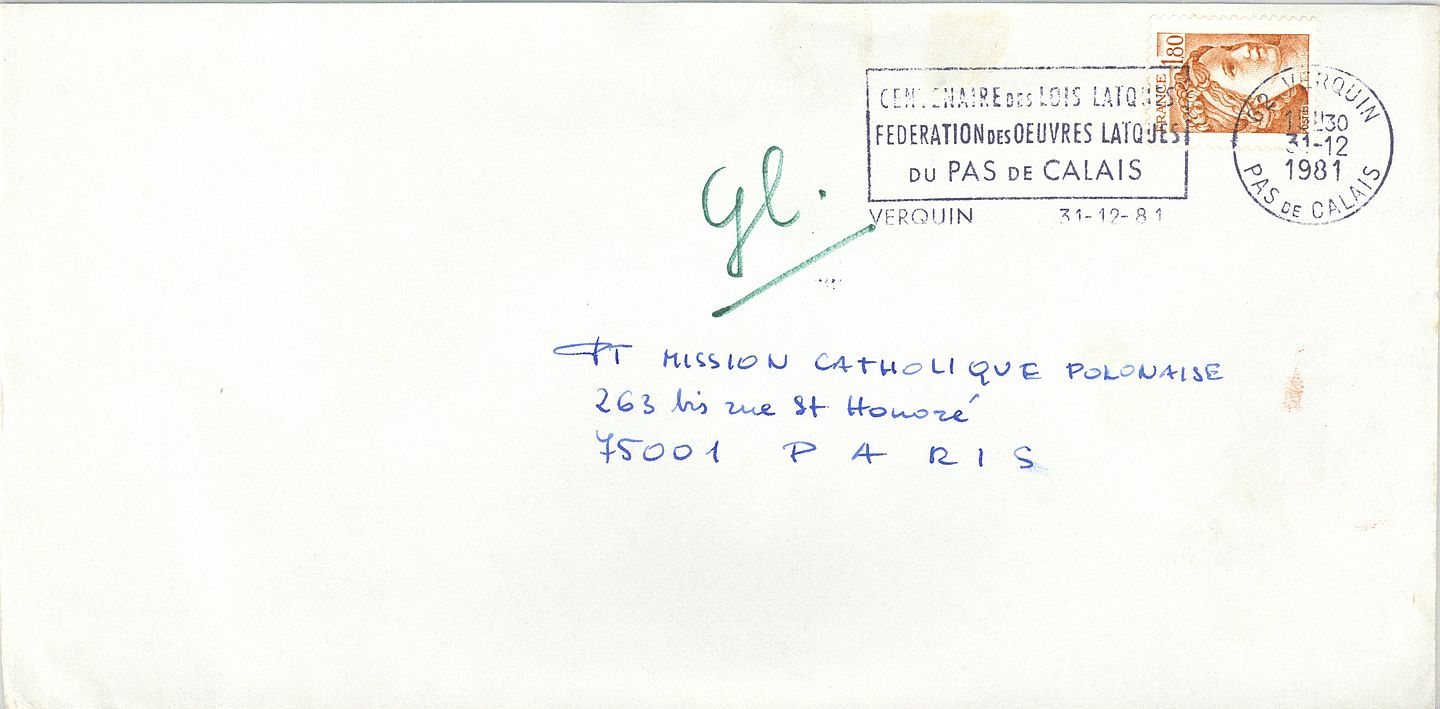 FRANCE 1,80
CENTENAIRE DES LOIS LAÏQUES
FEDERATION DES OEUVRES LAÏQUES
DU PAS DE CALAIS
VERQUIN 31-12-81
62 VERQUIN
31-12
1981
PAS DE CALAIS
Gl.
PT MISSION CATHOLIQUE POLONAISE
263 bis rue St Honoré
75001 PARIS